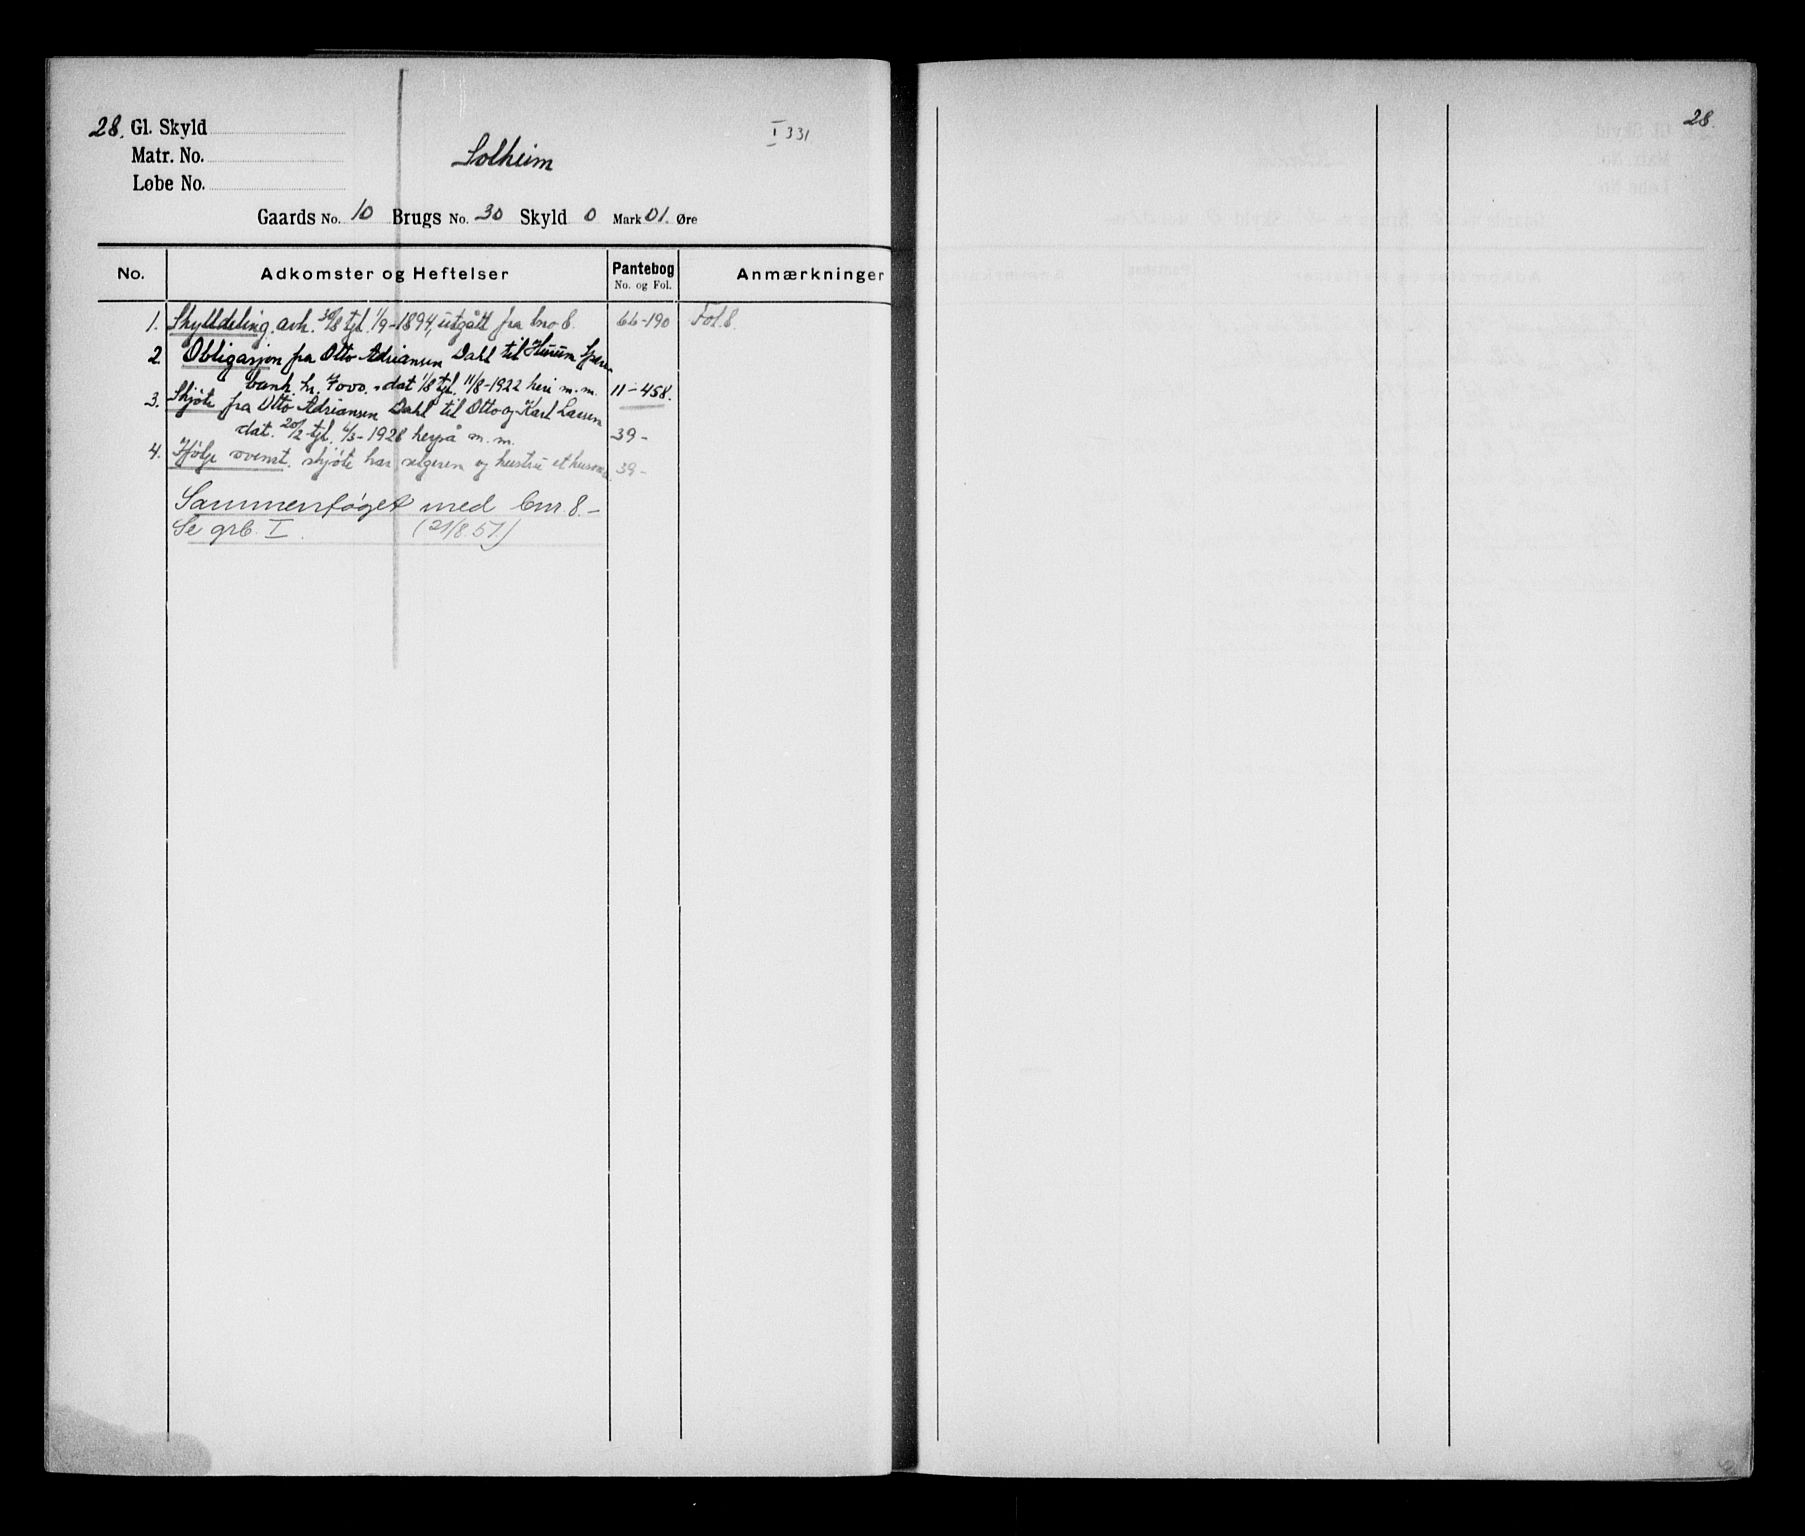 28. Gl. Skyld
Matr. No.
Løbe No.
Solheim
I 331
Gaards No. 10 Brugs No. 30 Skyld 0 Mark 01. Øre
No. Adkomster og Heftelser Pantebog No. og Fol. Anmærkninger
1. Skylldeling. avh. 30/8 tgl. 1/9-1894, utgått fra bno 8. 66-190 Fol. 8.
2. Obligasjon fra Otto Adriansen Dahl til Hurum Spare
bank kr. 7000.- dat 1/8 tgl. 11/8-1922 heri m.m. 11-458.
3. Skjøte fra Otto Adriansen Dahl til Otto og Karl Larsen
dat. 20/2 tgl. 6/3-1928 herpå m.m. 39-
4. Ifølge ovenst. skjøte har selgeren og hustru et 39-
Sammenføyet med bnr. 8.-
Se grb. I. (21/8.57)
28.